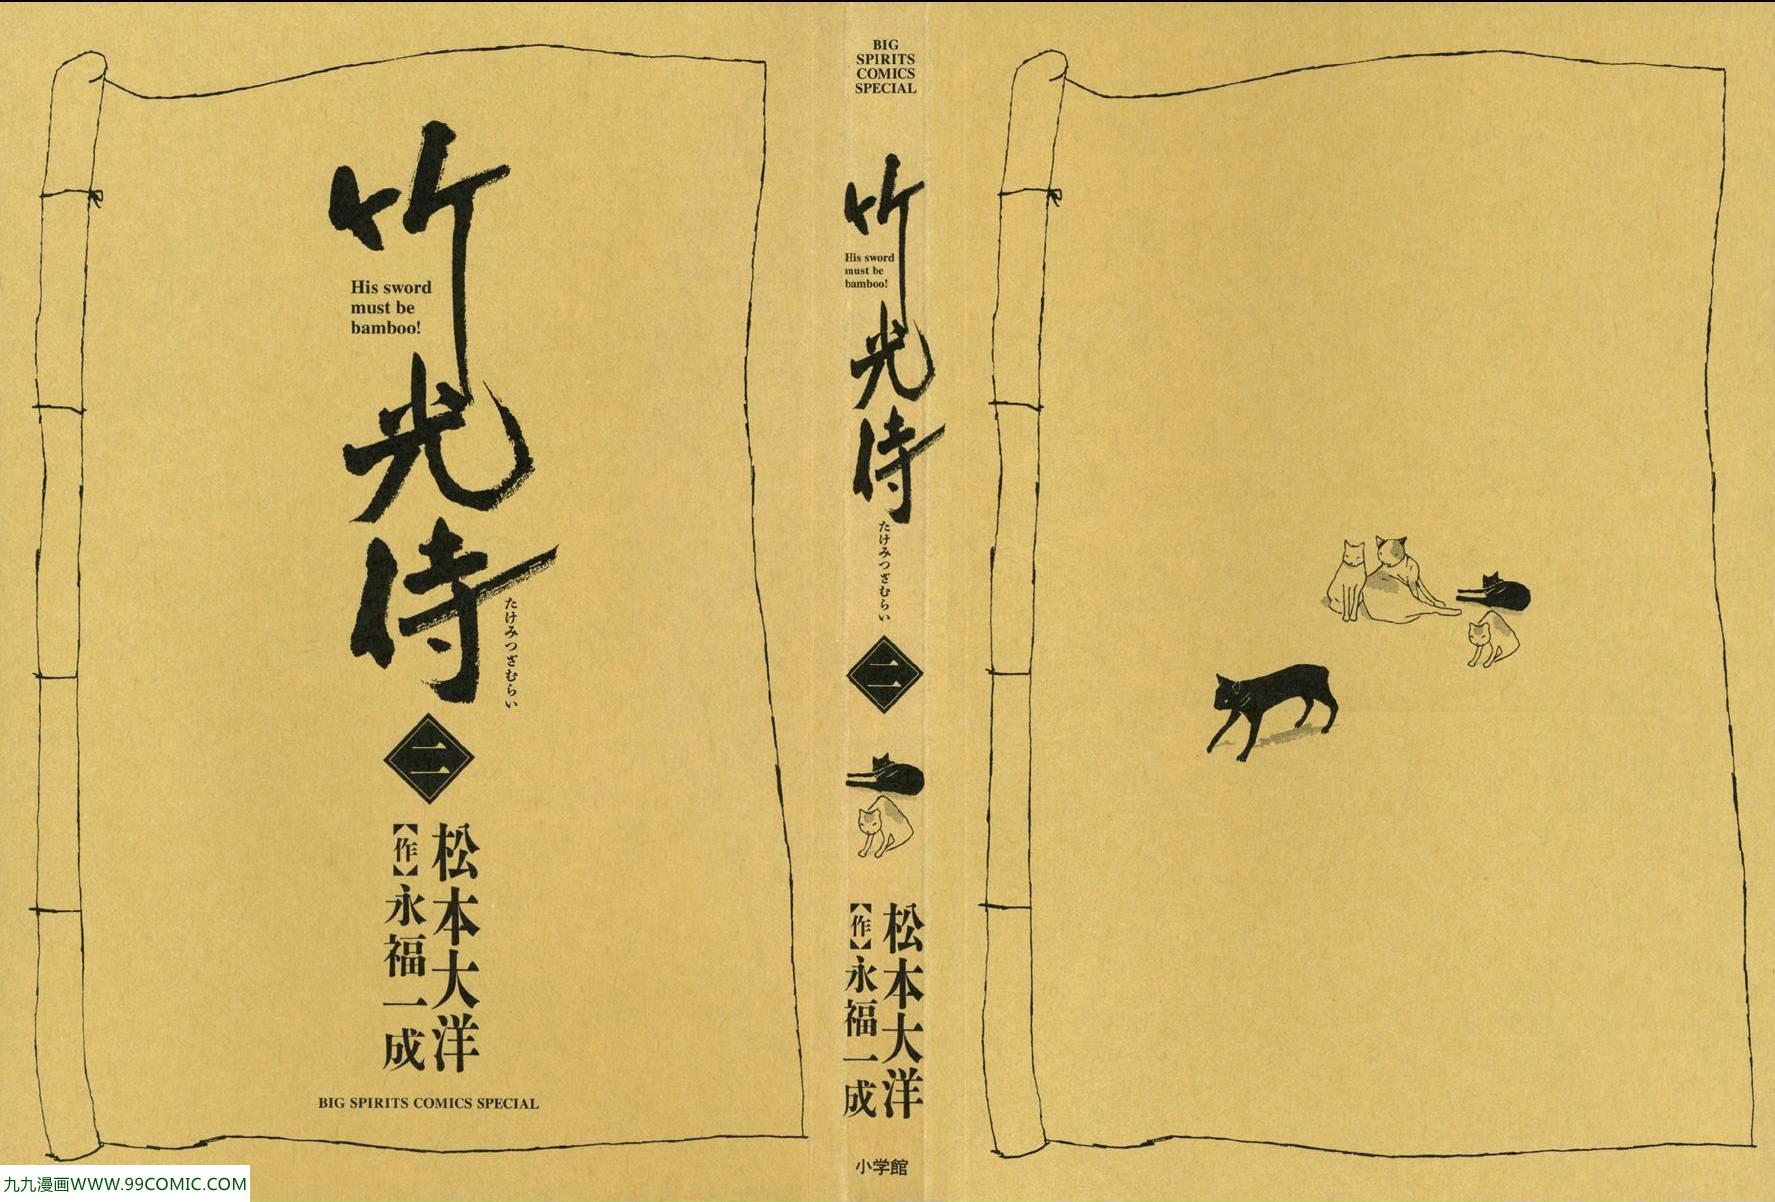 竹光侍
His sword
must be
bamboo!
たけみつざむらい
二
松本大洋
【作】永福一成
BIG SPIRITS COMICS SPECIAL
BIG
SPIRITS
COMICS
SPECIAL
竹光侍
His sword
must be
bamboo!
たけみつざむらい
二
松本大洋
【作】永福一成
小学館
九九漫画WWW.99COMIC.COM